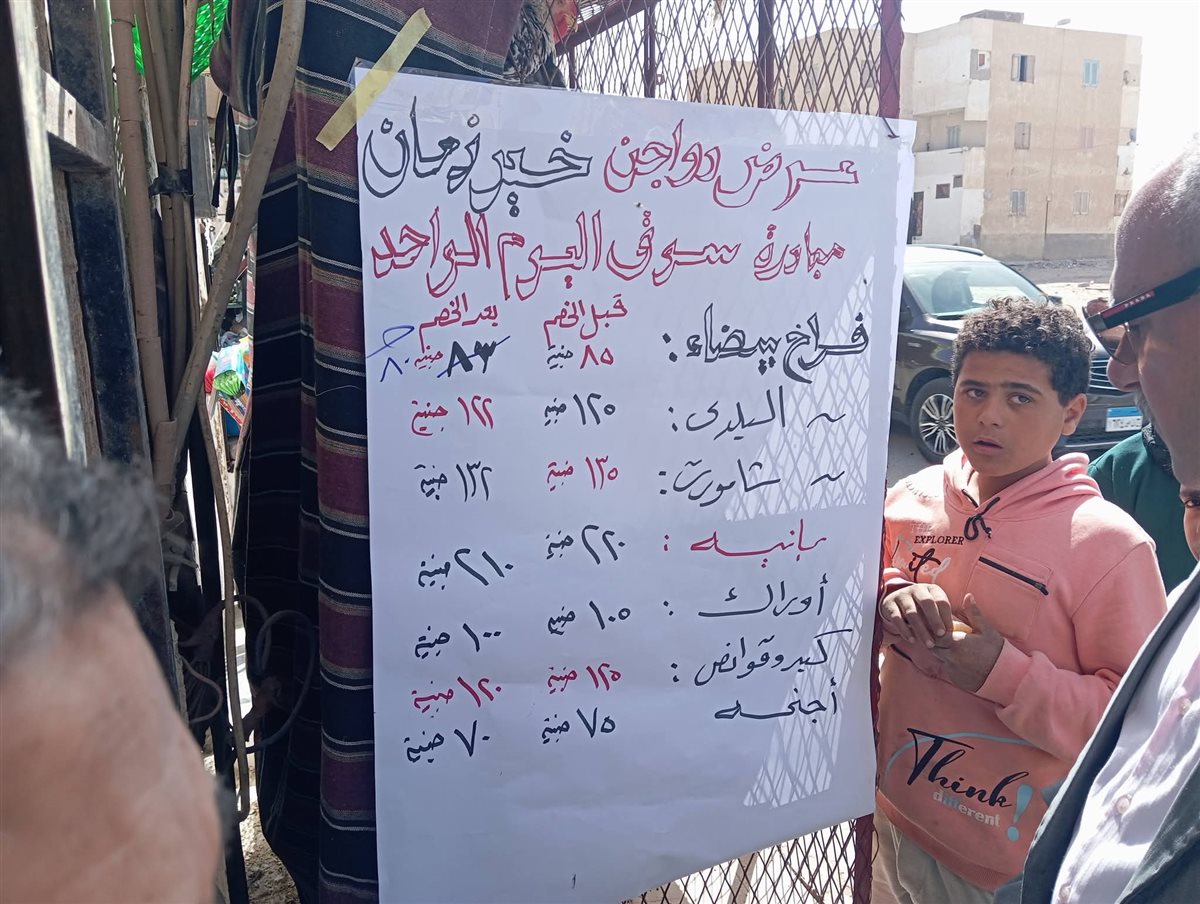 عرض دواجن خير زمان
مبادرة سوق اليوم الواحد
قبل الخصم بعد الخصم
فراخ بيضاء: ٨٥ جنية ٨٣ جنية ٨٠
~ البلدى: ١٢٥ جنية ١٢٢ جنية
~ شامورت: ١٣٥ جنية ١٣٢ جنية
بانيه: ٢٢٠ جنية ٢١٠ جنية
أوراك: ١٠٥ جنية ١٠٠ جنية
كبد وقوانص: ١٢٥ جنية ١٢٠ جنية
أجنحه ٧٥ جنية ٧٠ جنية
EXPLORER
Think
different
!